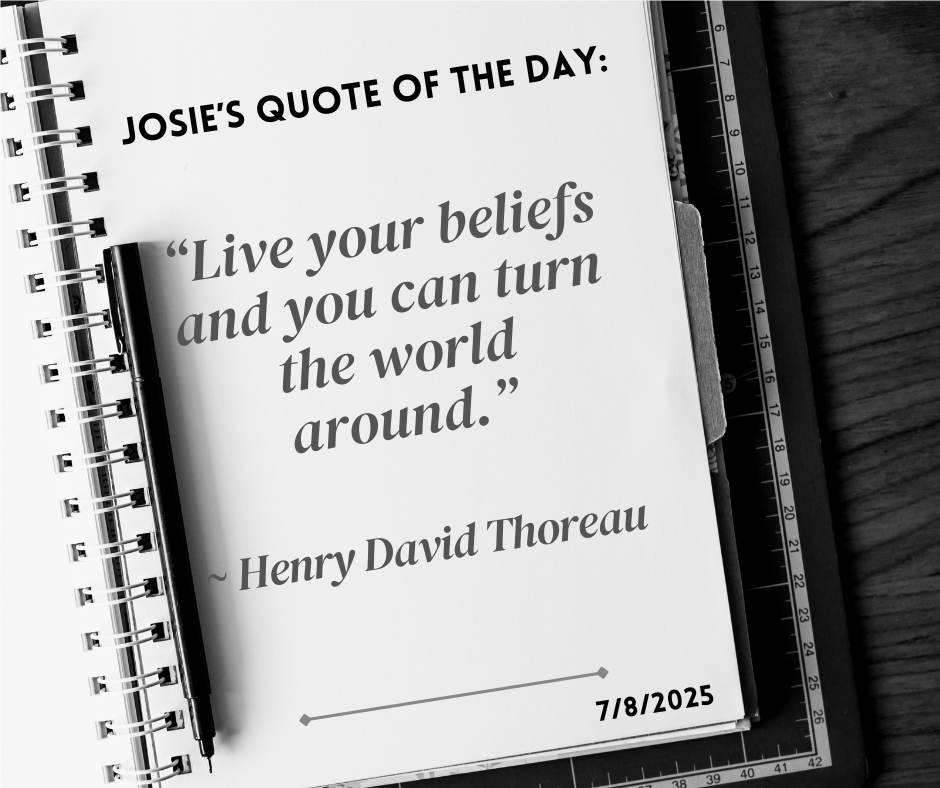 JOSIE'S QUOTE OF THE DAY:
“Live your beliefs
and you can turn
the world
around.”
~ Henry David Thoreau
7/8/2025
6
7
8
9
10
11
12
13
14
15
16
17
18
19
20
21
22
23
24
25
26
38
39
40
41
42